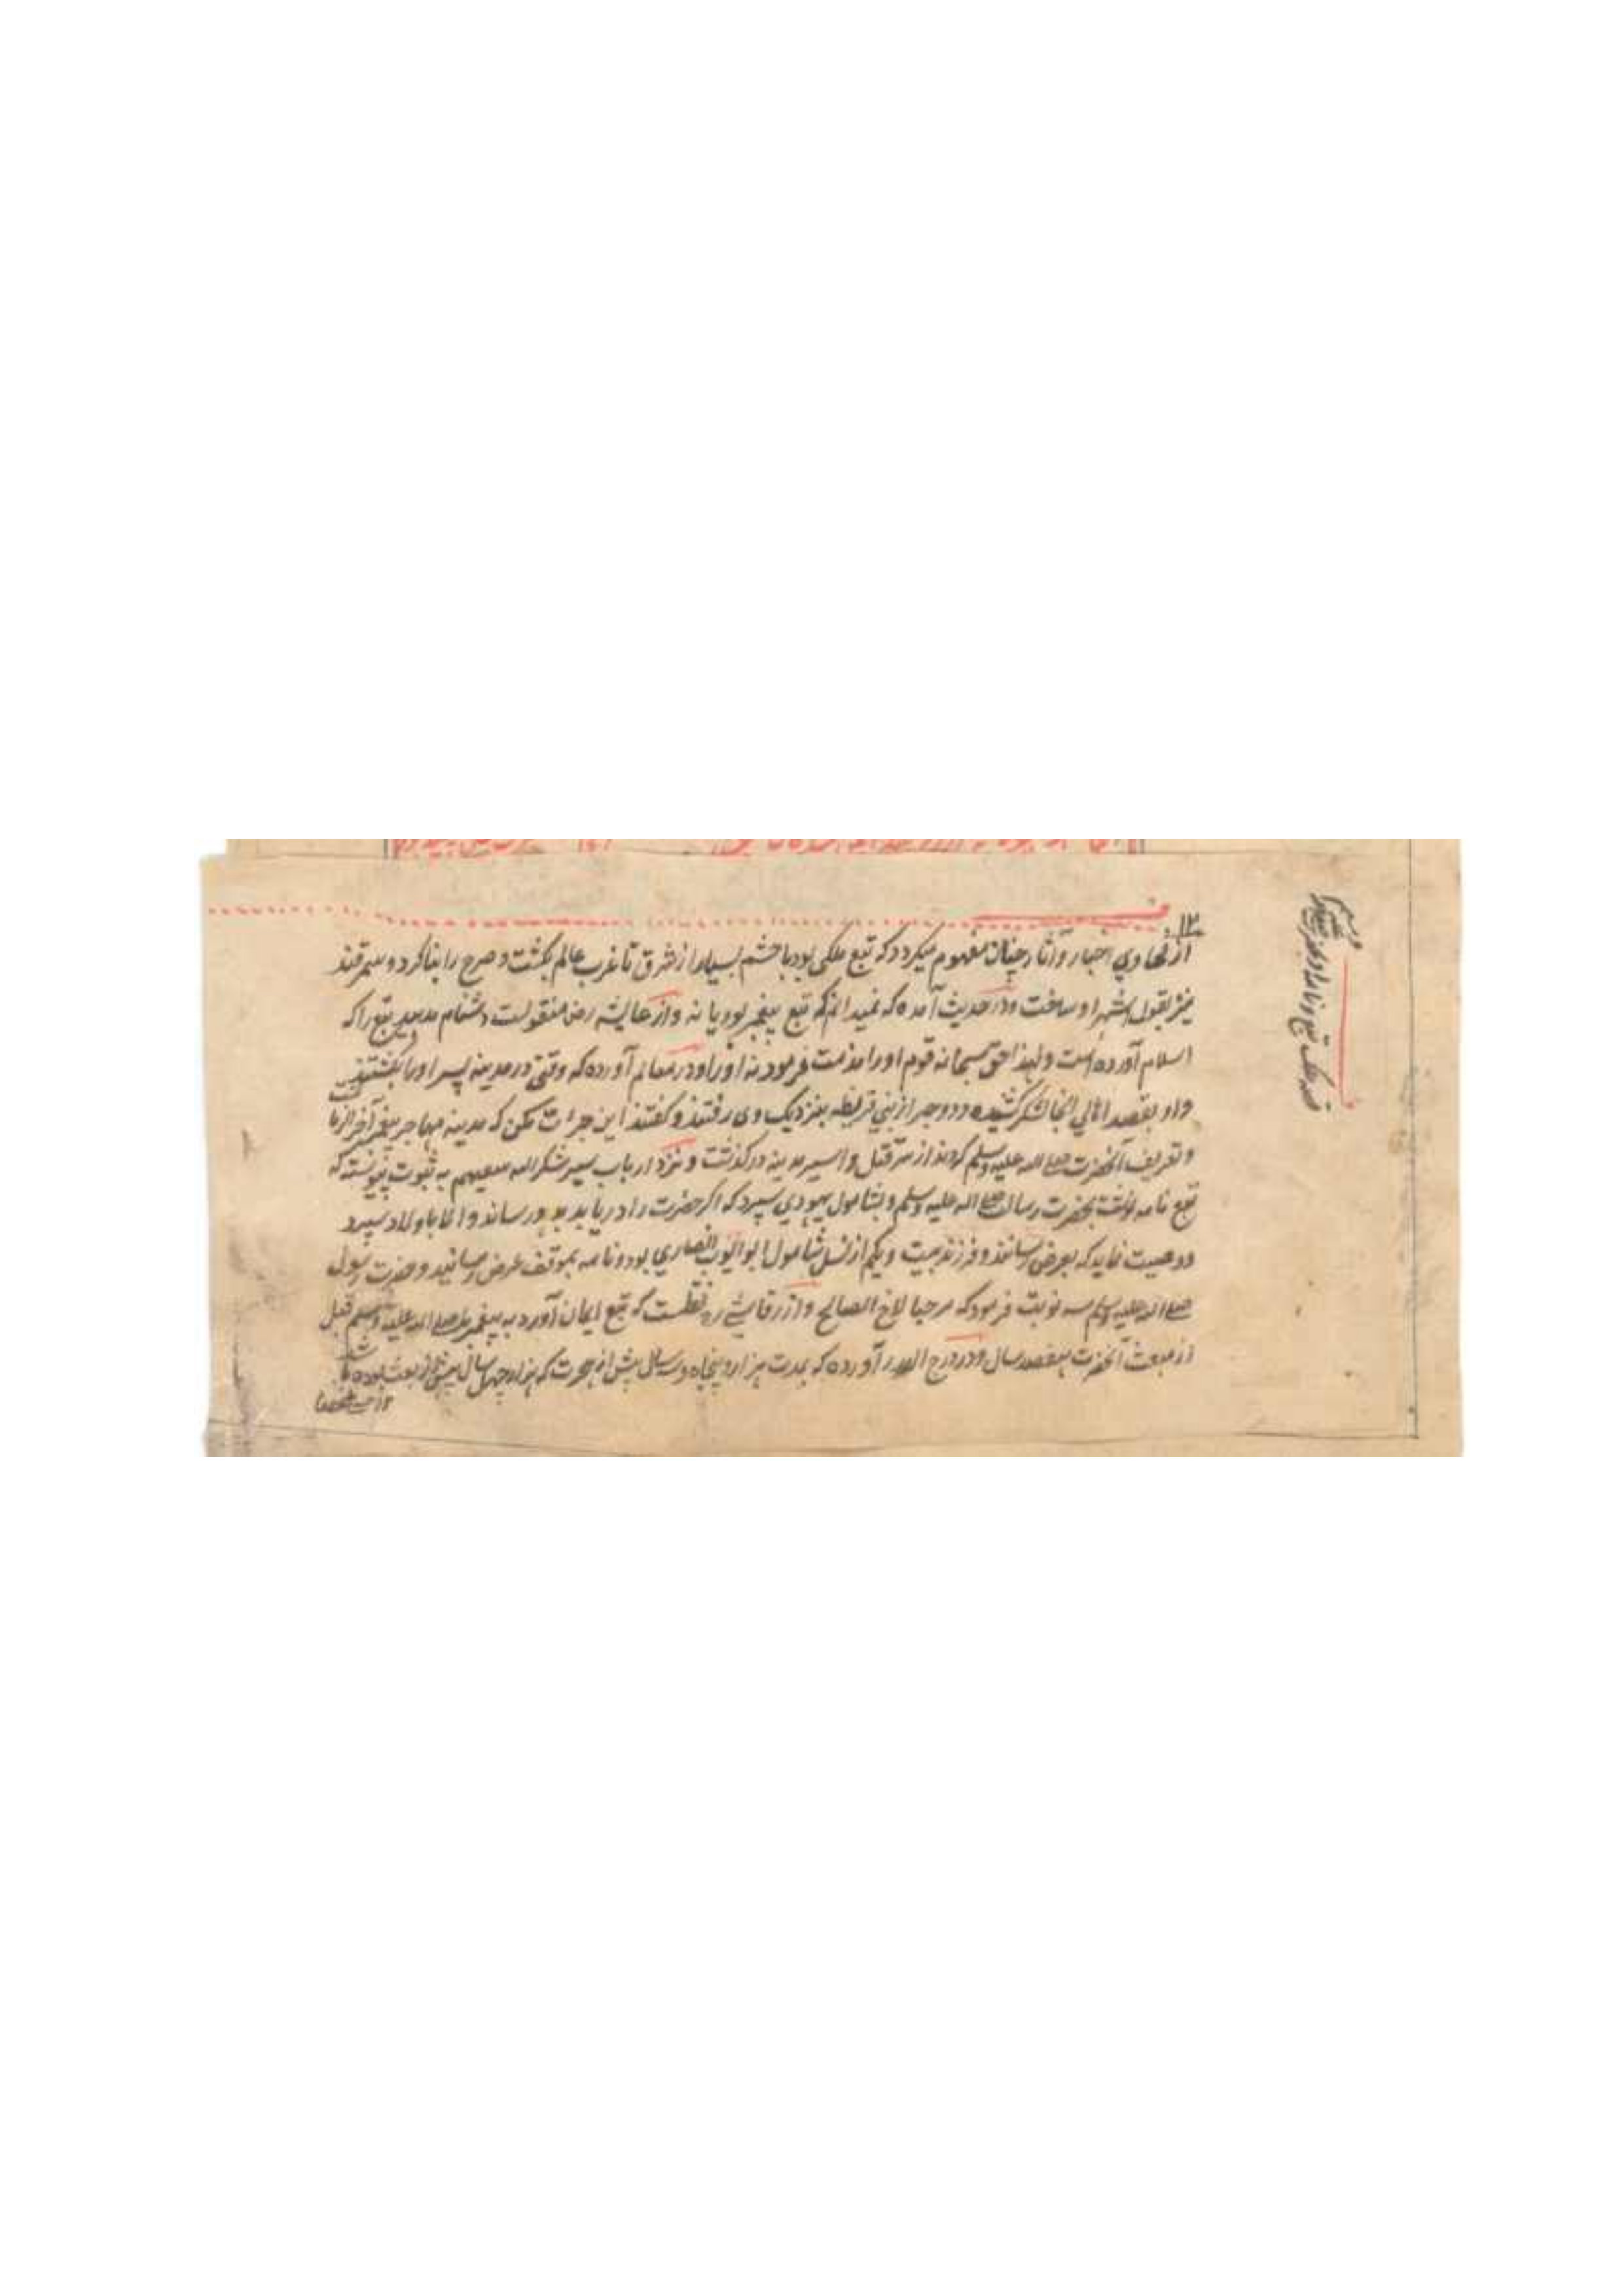 ۱۲
از فحاوي اخبار و آثار چنان مفهوم میکردد که تبع ملکی بود با حشم بسیار از شرق تا غرب عالم بکشت و صرح را بنا کرد و سمرقند
نیز بقول اشهر او ساخت و در حدیث آمده که نمیدانم که تبع پیغمبر بود یا نه و از عایشه رض منقولست دشنام مدهید تبع را که
اسلام آورده است و لهذا حق سبحانه قوم او را مذمت فرمود نه او را و در معالم آورده که وقتی در مدینه پسر او را بکشتند
و او بقصد اهالي انجا لشکر کشیده و دو حبر از بني قریظه بنزدیک وی رفتند و کفتند این جرات مکن که مدینه مهاجر پیغمبر آخر الزما
و تعریف آنحضرت صلے الله علیه وسلم کردند از سر قتل و اسیر مدینه درکذشت و نزد ارباب سیر شکر الله سعیهم به ثبوت پیوسته که
تبع نامه نوشت بحضرت رسالت صلے الله علیه وسلم و بشامول یهودي سپرد که اکر حضرت را دریابد بدو رساند و الا باولاد سپرد
و وصیت نماید که بعرض رسانند و فرزند بیست و یکم از نسل شامول ابو ایوب انصاري بود و نامه بموقف عرض رسانید و حضرت رسول
صلے الله علیه وسلم سه نوبت فرمود که مرحبا لاخ الصالح و از رقاشے نقلست که تبع ایمان آورد به پیغمبر ما صلے الله علیه وسلم قبل
از مبعث آنحضرت بهفصد سال و در درج الدرر آورده که بمدت هزار و پنجاه و سه سال پیش از هجرت که هزار و چهل سال پیش از بعث بوده باشد
قصه ملک تبع و نامه او بحضرت